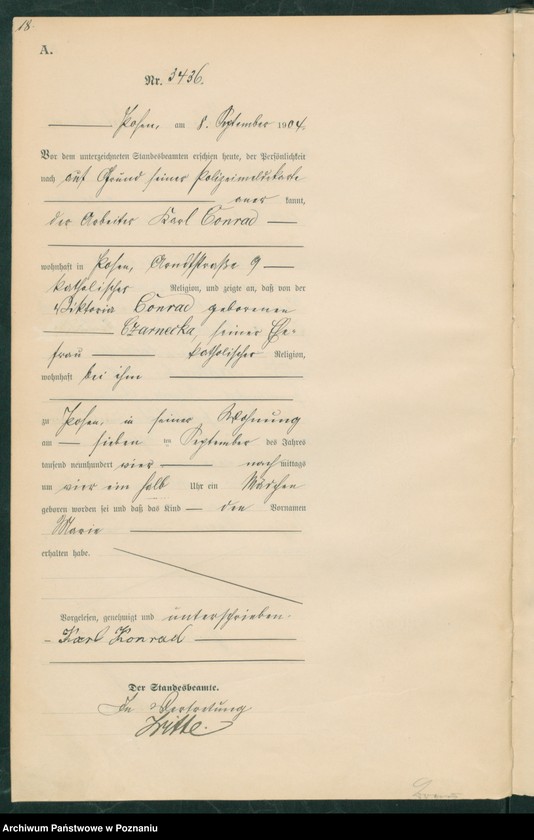 18
A.
Nr. 3436.
Posen, am 8. September 1904.
Vor dem unterzeichneten Standesbeamten erschien heute, der Persönlichkeit
nach auf Grund seiner Polizeimeldekarte
aner kannt,
der Arbeiter Karl Conrad
wohnhaft in Posen, Arndtstraße 9
katholischer Religion, und zeigte an, daß von der
Viktoria Conrad geborenen
Czarnecka, seiner Ehe-
frau katholischer Religion,
wohnhaft bei ihm
zu Posen in seiner Wohnung
am sieben ten September des Jahres
tausend neunhundert vier nach mittags
um vier ein halb Uhr ein Mädchen
geboren worden sei und daß das Kind den Vornamen
Marie
erhalten habe.
Vorgelesen, genehmigt und unterschrieben.
Karl Konrad
Der Standesbeamte.
In Vertretung
Archiwum Państwowe w Poznaniu